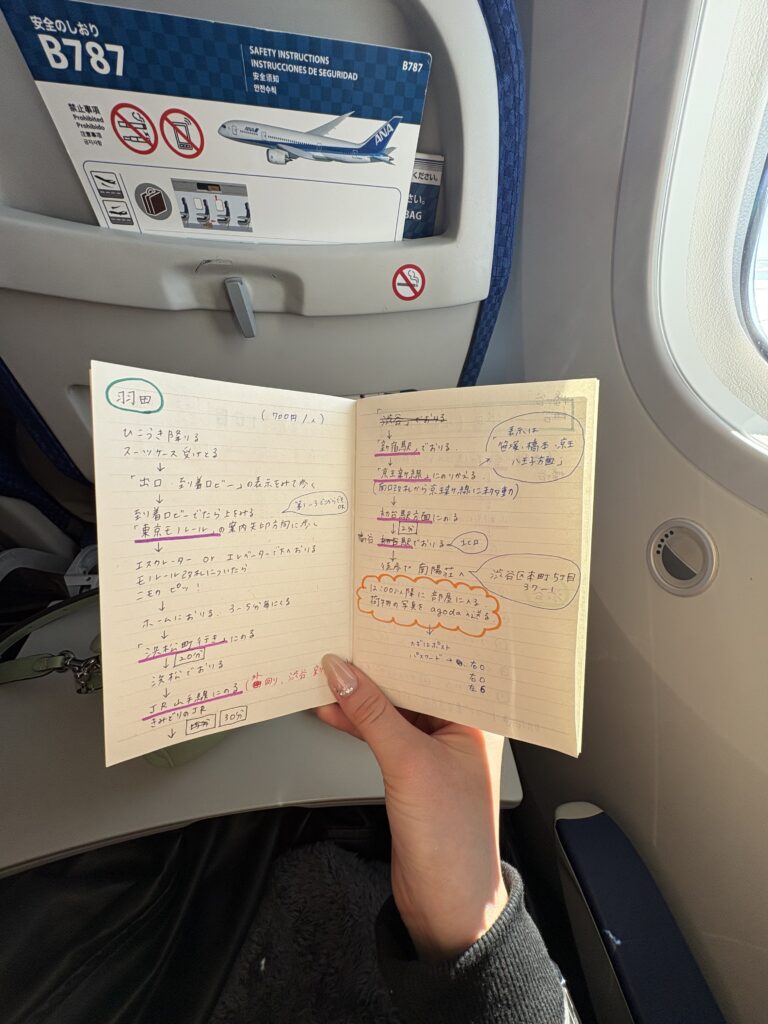 安全のしおり
B787
SAFETY INSTRUCTIONS
INSTRUCCIONES DE SEGURIDAD
安全须知
안전수칙
B787
禁止事項
Prohibited
Prohibido
ANA
ANA
ください。
さい。
BAG
羽田
(700円/人)
ひこうき降りる
スーツケース受けとる
↓
「出口・到着ロビー」の表示をみて歩く
↓
到着ロビーでたら上をみる
「東京モノレール」の案内矢印方向に歩く
↓
エスカレーター or エレベーターで下へおりる
モノレール改札についたら
ニモカ ピッ!
↓
ホームにおりる、3~5分毎にくる
↓
「浜松町行き」にのる
↓ 20分
浜松でおりる
↓
JR山手線にのる(外回り、渋谷
きみどりのJR
↓ 30分
「渋谷」でおりる
↓
「新宿駅」でおりる
↓
「京王新線」にのりかえる
(南口改札から京王新線に移動)
↓
初台駅方面にのる
↓ 2分
幡谷 初台駅でおりる
表示は
「笹塚・橋本・京王
八王子方面」
↓
徒歩で 南陽荘へ
渋谷区本町5丁目
37-1
12:00以降に部屋に入る
荷物の写真を agodaへ送る
↓
カギはポスト
パスワード → 右0
右0
左6